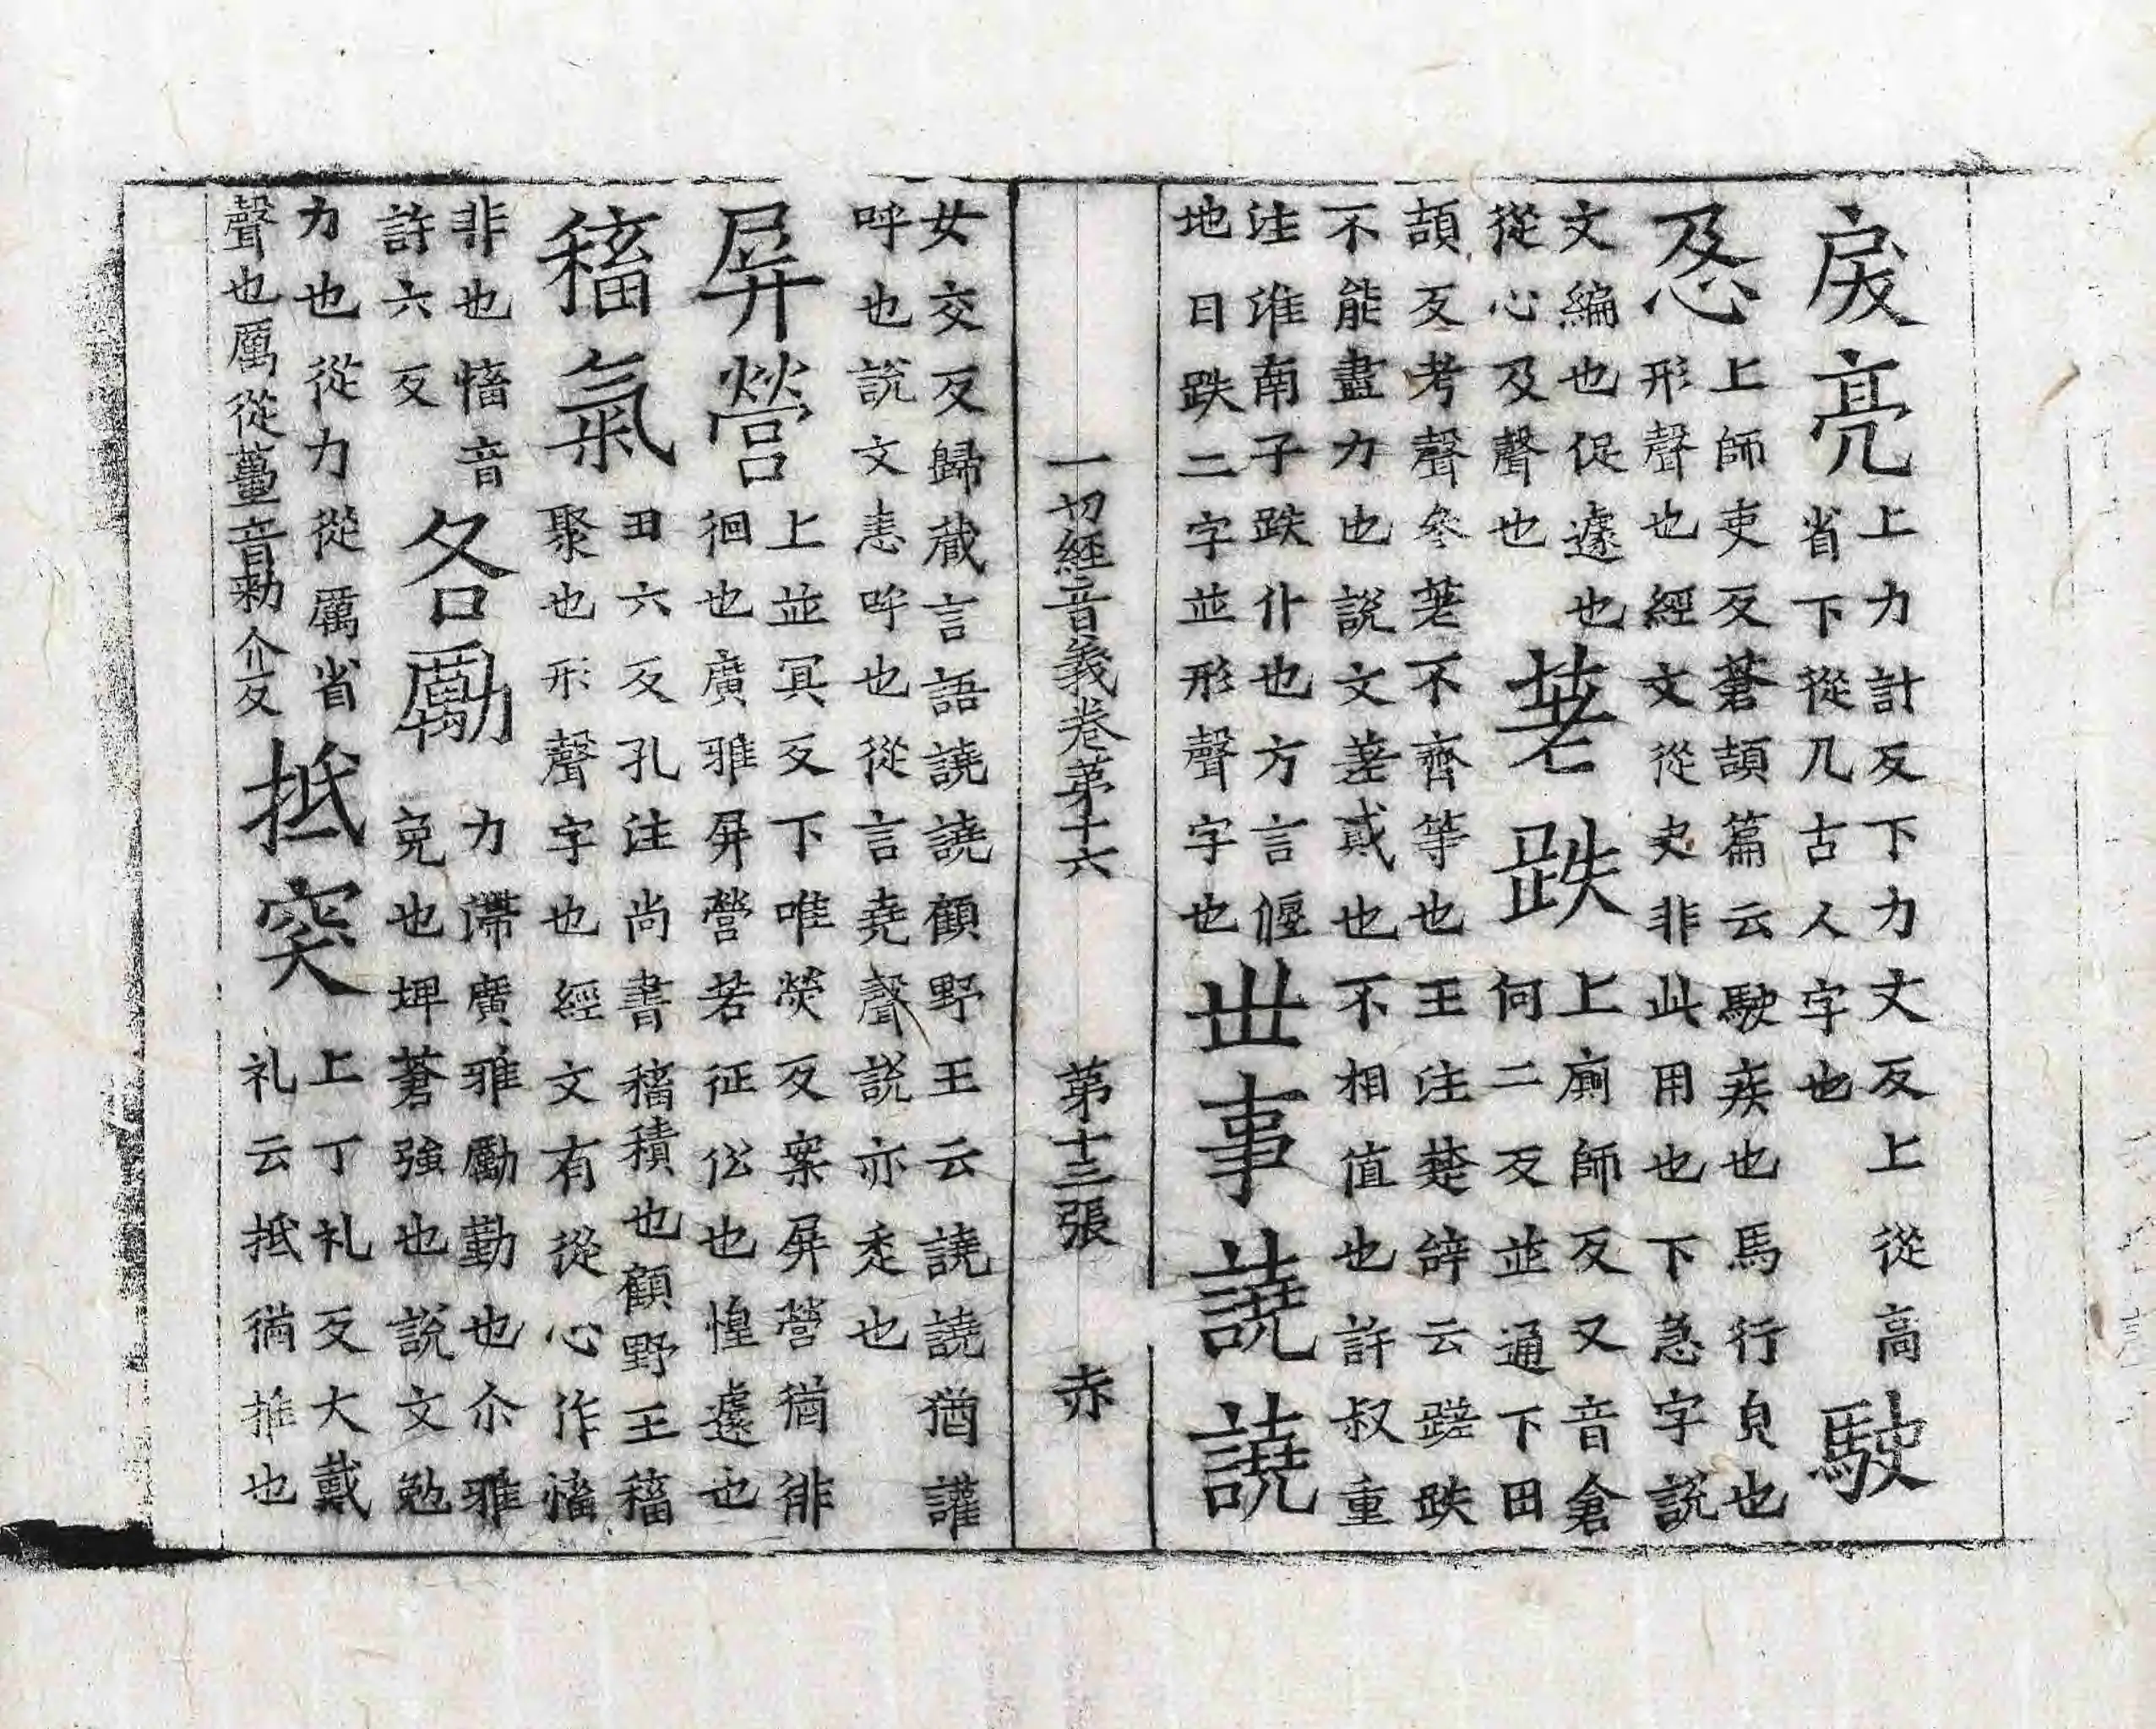 戾亮
上力計反下力丈反上從高
省下從几古人字也
駛
㤂
上師吏反蒼頡篇云駛疾也馬行皃也
形聲也經文從史非此用也下急字說
文編也促遽也
從心及聲也
差跌
上廁師反又音倉
何二反並通下田
頡反考聲參差不齊等也王注楚辭云蹉跌
不能盡力也說文差貳也不相值也許叔重
注淮南子跌仆也方言偃
地曰跌二字並形聲字也
世事譊譊
一切經音義卷苐十六 第十三張 赤
女交反歸藏言語譊譊顧野王云譊譊猶讙
呼也說文恚呼也從言堯聲說亦恚也
屏營
上並冥反下唯熒反案屏營猶徘
徊也廣雅屏營若征伀也惶遽也
稸氣
丑六反孔注尚書稸積也顧野王稸
聚也形聲字也經文有從心作慉
非也慉音
許六反
各勵
力滯廣雅勵勤也尒雅
免也埤蒼強也說文勉
力也從力從厲省
聲也厲從蠆音勑介反
抵突
上丁礼反大戴
礼云抵猶推也